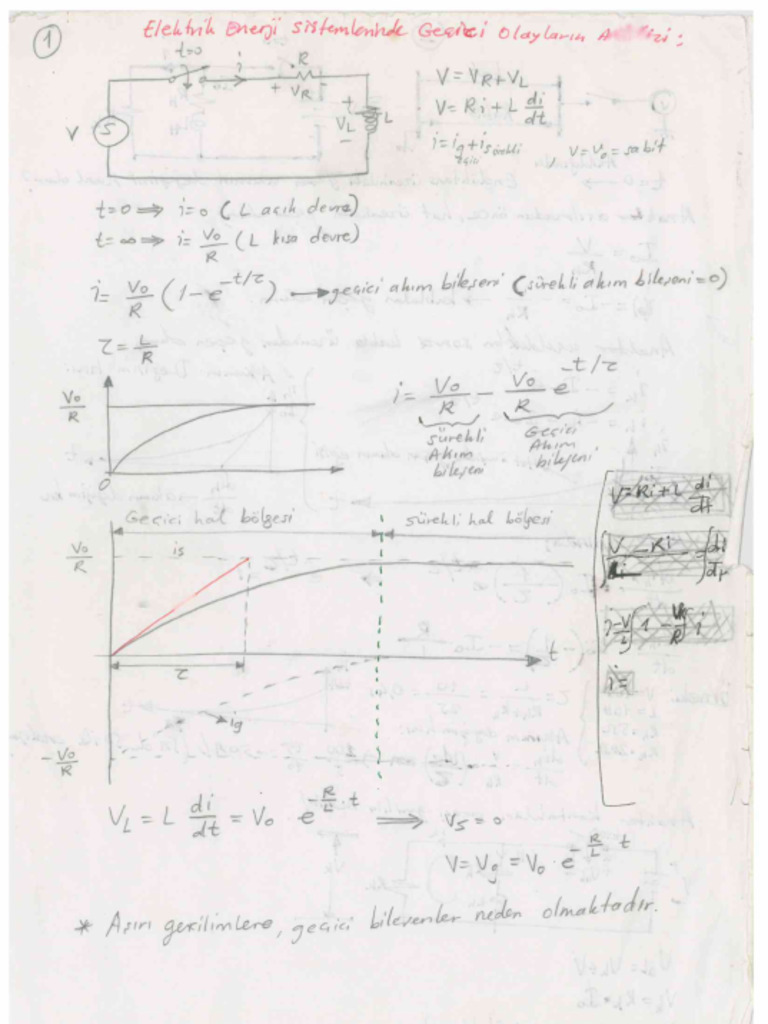 1
Elektrik Enerji Sistemlerinde Geçici Olayların Analizi:
t=0
i
R
+ VR -
V
S
+
VL
-
L
V = VR + VL
V = Ri + L di/dt
i = ig + is
geçici
sürekli
V = V0 = sabit
t=0 ⟹ i=0 (L açık devre)
t=∞ ⟹ i= V0/R (L kısa devre)
i= V0/R (1-e^-t/τ) → geçici akım bileşeni (sürekli akım bileşeni=0)
τ = L/R
V0/R
0
i = V0/R - V0/R e^-t/τ
sürekli Akım bileşeni
Geçici Akım bileşeni
Geçici hal bölgesi
sürekli hal bölgesi
V0/R
is
τ
t
ig
-V0/R
V=Ri+L di/dt
i=
VL = L di/dt = V0 e^-R/L t ⟹ Vs=0
V=Vg = V0 e^-R/L t
* Aşırı gerilimlere, geçici bileşenler neden olmaktadır.